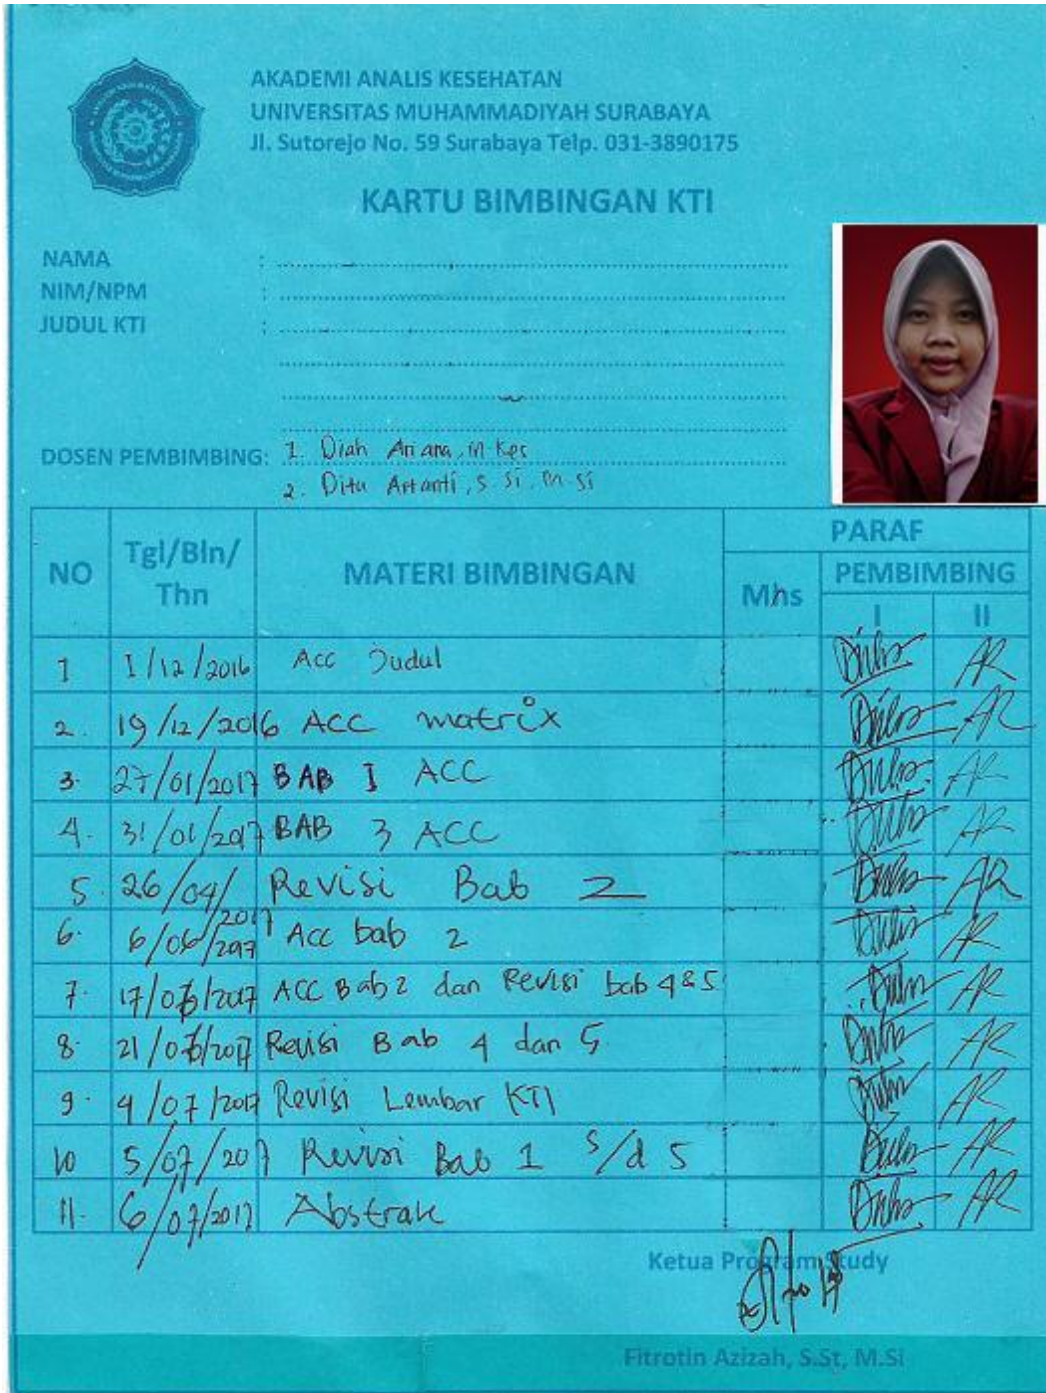 AKADEMI ANALIS KESEHATAN
UNIVERSITAS MUHAMMADIYAH SURABAYA
Jl. Sutorejo No. 59 Surabaya Telp. 031-3890175
KARTU BIMBINGAN KTI
NAMA :
NIM/NPM :
JUDUL KTI :
DOSEN PEMBIMBING: 1. Diah Ariana, M. Kes
2. Dita Artanti, S. Si, M. Si
NO Tgl/Bln/Thn MATERI BIMBINGAN PARAF
Mhs PEMBIMBING
I II
1 1/12/2016 Acc Judul AR
2. 19/12/2016 ACC matrix AR
3. 27/01/2017 BAB I ACC AR
4. 31/01/2017 BAB 3 ACC AR
5. 26/04/2017 Revisi Bab 2 AR
6. 6/06/2017 Acc bab 2 AR
7. 17/06/2017 ACC Bab 2 dan Revisi bab 4&5 AR
8. 21/06/2017 Revisi Bab 4 dan 5 AR
9. 4/07/2017 Revisi Lembar KTI AR
10 5/07/2017 Revisi Bab 1 s/d 5 AR
11. 6/07/2017 Abstrak AR
Ketua Program Study
Fitrotin Azizah, S.St, M.Si